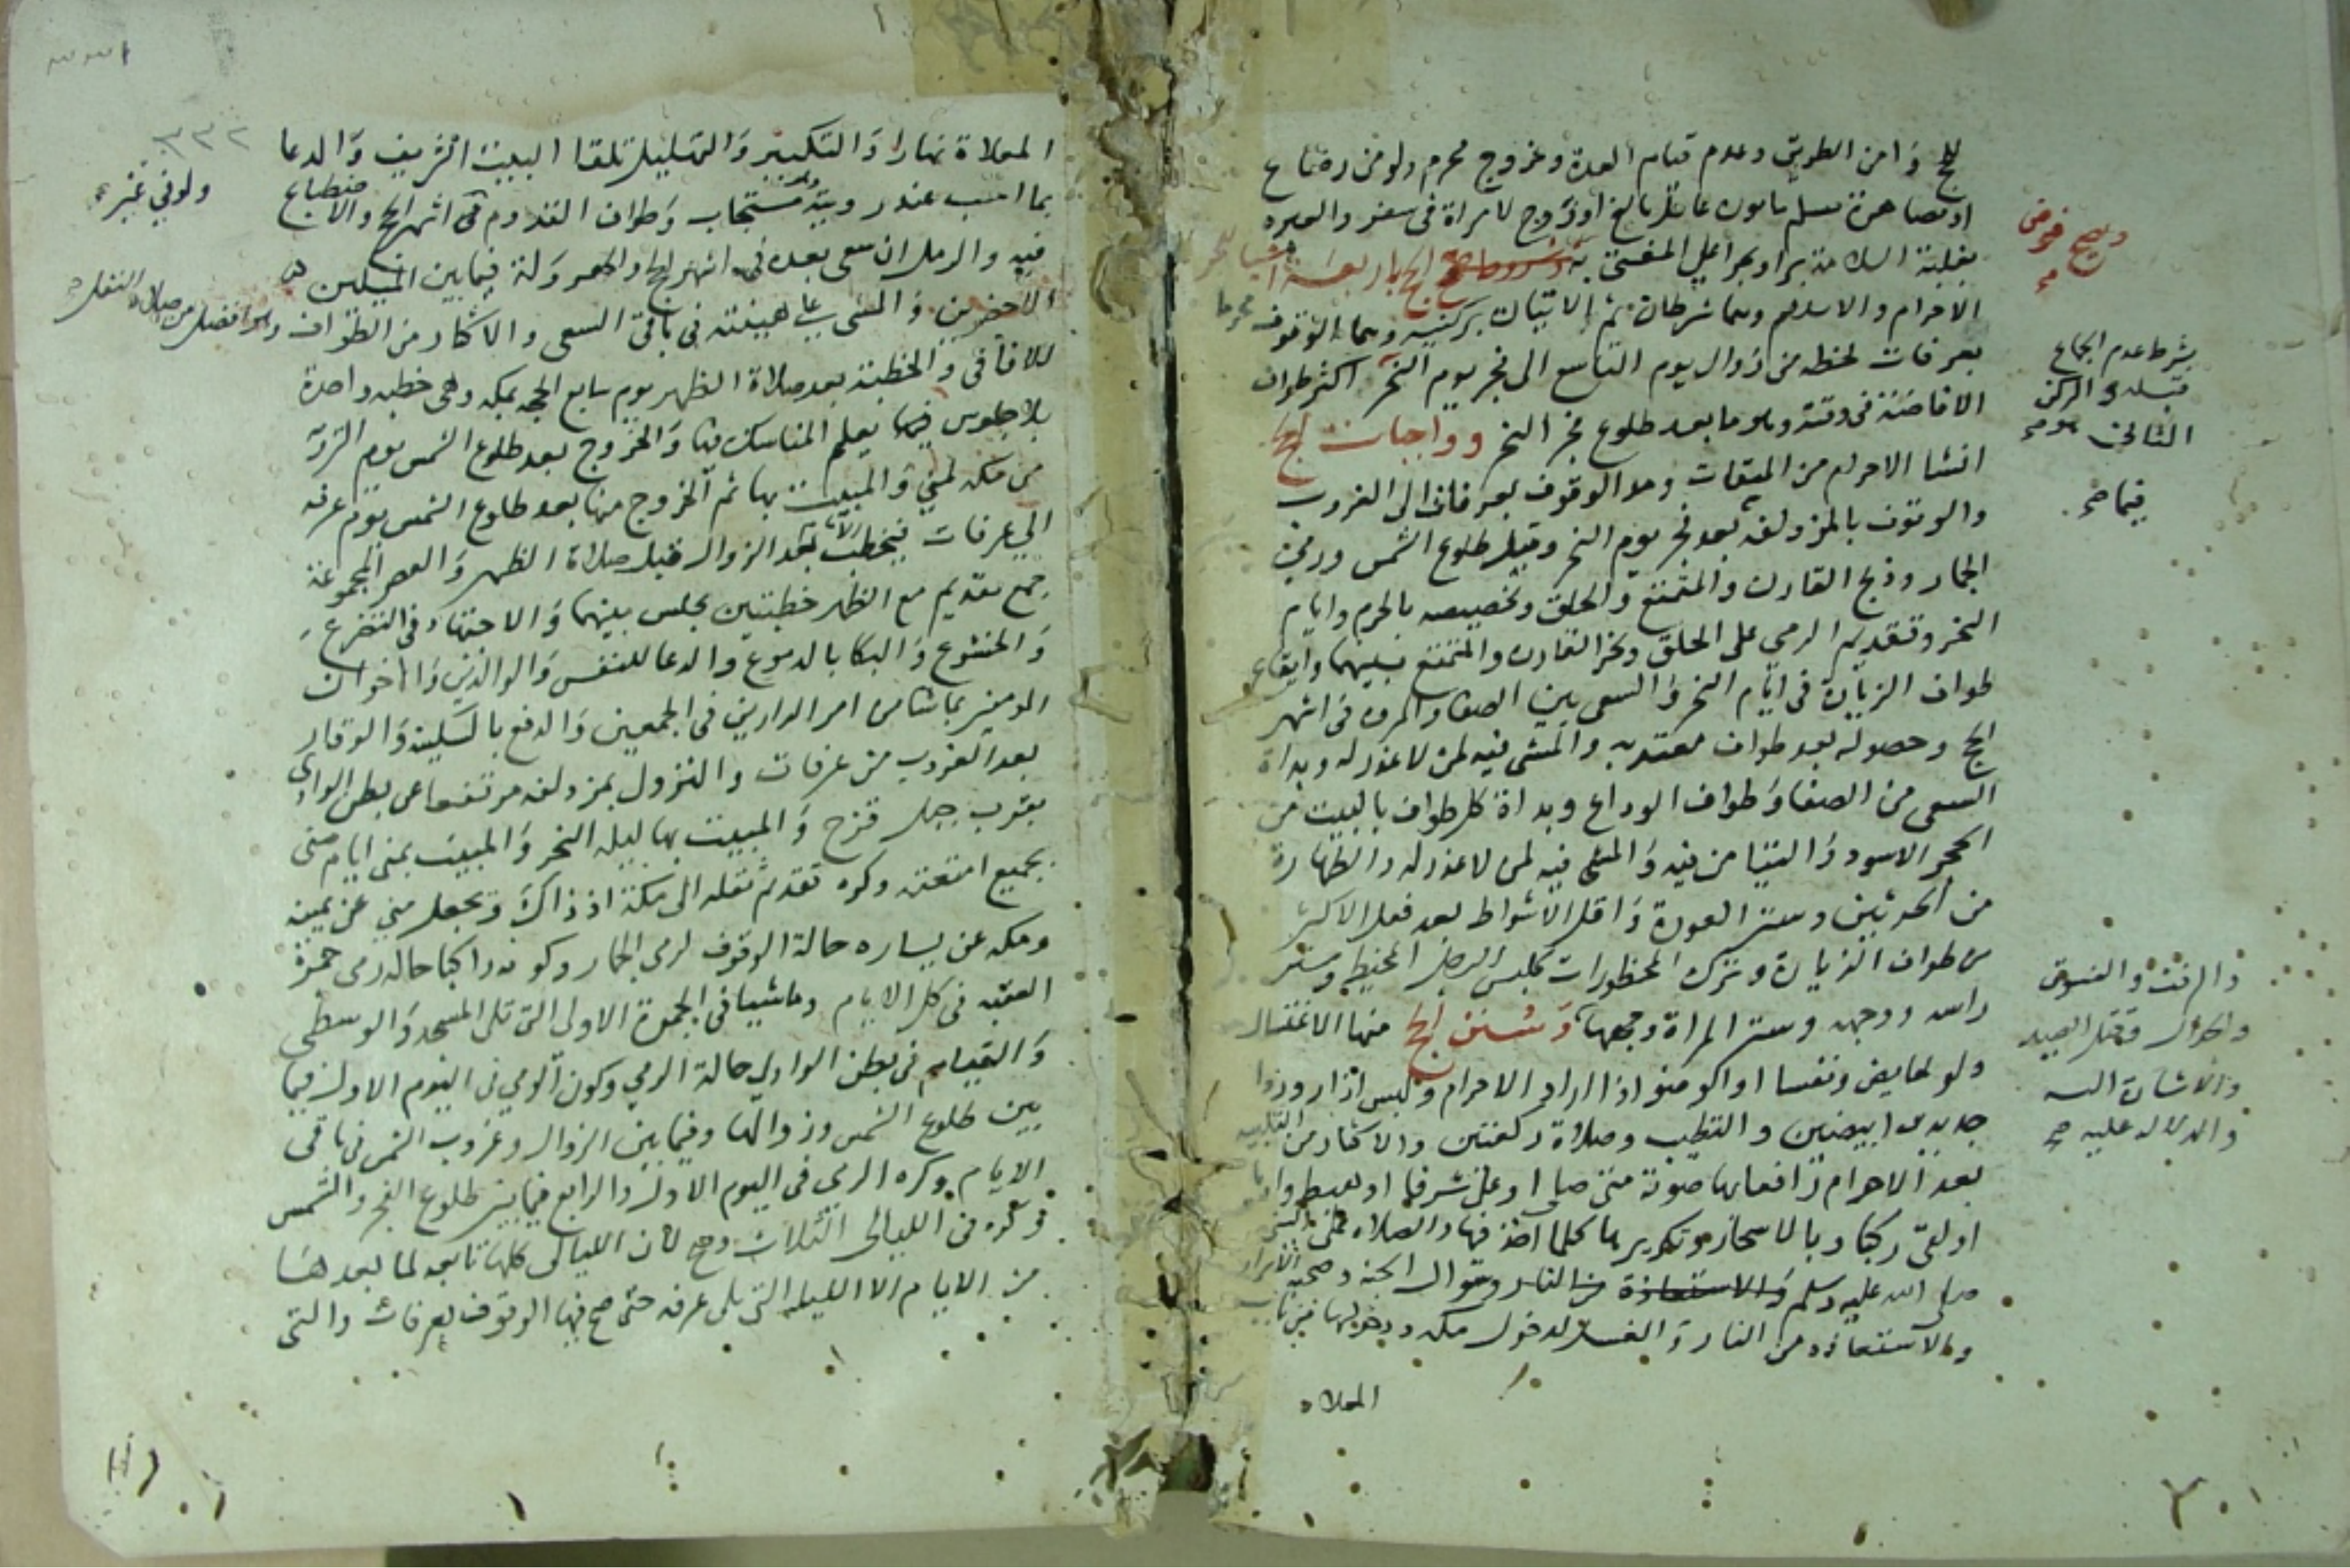 للحج وَامن الطريق وعدم قيام العدة وخروج محرم ولو من رضاع
او مصاهرة مسلم مامون عاقل بالغ او زوج لامراة في سفر والعبرة
بغلبة السلامة برا وبحرا على المفتى به ويصح فرض الحج باربعة اشيا للحر
الاحرام والاسلام وهما شرطان ثم الاتيان بركنيه وهما الوقوف محرما
بعرفات لحظه من زوال يوم التاسع الى فجر يوم النحر اكثر طواف
بشرط عدم الجماع
قبله والركن
الثاني هو صح
الافاضة في وقته وهو ما بعد طلوع فجر النحر وواجبات الحج
انشا الاحرام من الميقات ومد الوقوف بعرفات الى الغروب
والوقوف بالمزدلفه فيما صح بعد فجر يوم النحر وقبل طلوع الشمس ورمي
الجمار وذبح القارن والمتمتع والحلق وتخصيصه بالحرم وايام
النحر وتقديم الرمي على الحلق ونحر القارن والمتمتع بينهما وايقاع
طواف الزيارة في ايام النحر وَالسعي بين الصفا والمروه في اشهر
الحج وحصوله بعد طواف معتد به والمشي فيه لمن لا عذر له وبداة
السعي من الصفا وَطواف الوداع وبداة كل طواف بالبيت من
الحجر الاسود وَالتيامن فيه وَالمشي فيه لمن لا عذر له والطهارة
من الحدثين وستر العورة وَاقل الاشواط بعد فعل الاكثر
من طواف الزيارة وترك المحظورات كلبس الرجل المخيط وستر
راسه ووجهه وستر المراة وجهها وَسُنن الحج منها الاغتسال
والرفث والفسوق
والجدال وقتل الصيد
والاشارة اليه
والدلاله عليه صح
ولو لحايض ونفسا او الوضو اذا اراد الاحرام ولبس ازار وردا
جديدين ابيضين والتطيب وصلاة ركعتين والاكثار من التلبيه
بعد الاحرام رافعا بها صوته متى صلى او علا شرفا او هبط واديا
او لقي ركبا وبالاسحار وتكريرها كلما اخذ فيها والصلاه على النبي
صلى الله عليه وسلم وسوال الجنة وصحبة الابرار
والاستعاذه من النار وَالغسل لدخول مكه ودخولها من باب
المعلاه
٣٣٢
المعلاة نهارا وَالتكبير وَالتهليل تلقا البيت الشريف وَالدعا
بما احب عند رويته وهو مستجاب وَطواف القدوم ولو في غير اشهر الحج والاضطباع
فيه والرمل ان سعى بعده في اشهر الحج والهرولة فيما بين الميلين
الاخضرين وَالمشي على هينته في باقي السعي والاكثار من الطواف وهو افضل من صلاة النفل
للافاقي وَالخطبة بعد صلاة الظهر يوم سابع الحجه بمكه وهي خطبه واحدة
بلا جلوس فيها يعلم المناسك فيها وَالخروج بعد طلوع الشمس يوم التروية
من مكه لمنى وَالمبيت بها ثم الخروج منها بعد طلوع الشمس يوم عرفه
الى عرفات فيخطب الامام بعد الزوال قبل صلاة الظهر وَالعصر المجموعة
جمع تقديم مع الظهر خطبتين يجلس بينهما وَالاجتهاد في التضرع
وَالخشوع وَالبكا بالدموع والدعا للنفس وَالوالدين وَالاخوان
المومنين بما شا من امر الدارين في الجمعين وَالدفع بالسكينة وَالوقار
بعد الغروب من عرفات والنزول بمزدلفه مرتفعا عن بطن الوادي
بقرب جبل قزح وَالمبيت بها ليله النحر وَالمبيت بمنى ايام منى
بجميع امتعته وكره تقديم ثقله الى مكة اذ ذاك وَيجعل منى عن يمينه
ومكه عن يساره حالة الوقوف لرمي الجمار وكونه راكبا حاله رمي جمرة
العقبه في كل الايام وماشيا في الجمرة الاولى التي تلي المسجد وَالوسطى
وَالقيام في بطن الوادي حالة الرمي وكون الرمي في اليوم الاول فيما
بين طلوع الشمس وزوالها وفيما بين الزوال وغروب الشمس في باقي
الايام وكره الرمي في اليوم الاول والرابع فيما بين طلوع الفجر والشمس
وكره في الليالي الثلاث وصح لان الليالي كلها تابعه لما بعدها
من الايام الا الليله التي تلي عرفه حتى صح فيها الوقوف بعرفات والتي